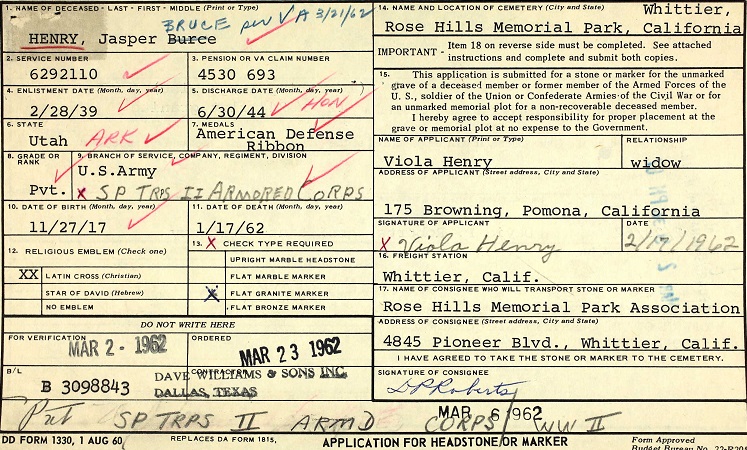 1. NAME OF DECEASED - LAST - FIRST - MIDDLE (Print or Type)
BRUCE per VA 3/21/62
HENRY, Jasper Burce
2. SERVICE NUMBER
6292110
3. PENSION OR VA CLAIM NUMBER
4530 693
4. ENLISTMENT DATE (Month, day, year)
2/28/39
5. DISCHARGE DATE (Month, day, year)
6/30/44 HON
6. STATE
Utah ARK
7. MEDALS
American Defense
Ribbon
8. GRADE OR
RANK
Pvt.
9. BRANCH OF SERVICE, COMPANY, REGIMENT, DIVISION
U.S.Army
X SP TRPS II ARMORED CORPS
10. DATE OF BIRTH (Month, day, year)
11/27/17
11. DATE OF DEATH (Month, day, year)
1/17/62
12. RELIGIOUS EMBLEM (Check one)
XX LATIN CROSS (Christian)
STAR OF DAVID (Hebrew)
NO EMBLEM
13. X CHECK TYPE REQUIRED
UPRIGHT MARBLE HEADSTONE
FLAT MARBLE MARKER
X FLAT GRANITE MARKER
FLAT BRONZE MARKER
DO NOT WRITE HERE
FOR VERIFICATION
MAR 2 - 1962
ORDERED
MAR 23 1962
B/L
B 3098843
CONTRACTOR
DAVE WILLIAMS & SONS INC.
DALLAS, TEXAS
14. NAME AND LOCATION OF CEMETERY (City and State)
Whittier,
Rose Hills Memorial Park, California
IMPORTANT - Item 18 on reverse side must be completed. See attached
instructions and complete and submit both copies.
15. This application is submitted for a stone or marker for the unmarked
grave of a deceased member or former member of the Armed Forces of the
U. S., soldier of the Union or Confederate Armies of the Civil War or for
an unmarked memorial plot for a non-recoverable deceased member.
I hereby agree to accept responsibility for proper placement at the
grave or memorial plot at no expense to the Government.
NAME OF APPLICANT (Print or Type)
Viola Henry
RELATIONSHIP
widow
ADDRESS OF APPLICANT (Street address, City and State)
175 Browning, Pomona, California
SIGNATURE OF APPLICANT
X Viola Henry
DATE
2/17/1962
16. FREIGHT STATION
Whittier, Calif.
17. NAME OF CONSIGNEE WHO WILL TRANSPORT STONE OR MARKER
Rose Hills Memorial Park Association
ADDRESS OF CONSIGNEE (Street address, City and State)
4845 Pioneer Blvd., Whittier, Calif.
I HAVE AGREED TO TAKE THE STONE OR MARKER TO THE CEMETERY.
SIGNATURE OF CONSIGNEE
D P Roberts
MAR 6 1962
Pvt SP TRPS II ARMD CORPS WW II
DD FORM 1330, 1 AUG 60
REPLACES DA FORM 1815,
APPLICATION FOR HEADSTONE OR MARKER
Form Approved
Budget Bureau No. 22-R205